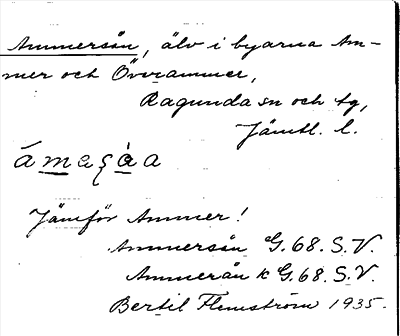 Ammersån, älv i byarna Am-
mer och Överammer,
Ragunda sn och tg,
Jämtl. l.
Jämför Ammer!
Ammersån G. 68. S. V.
Ammerån k G. 68. S. V.
Bertil Flemström 1935.